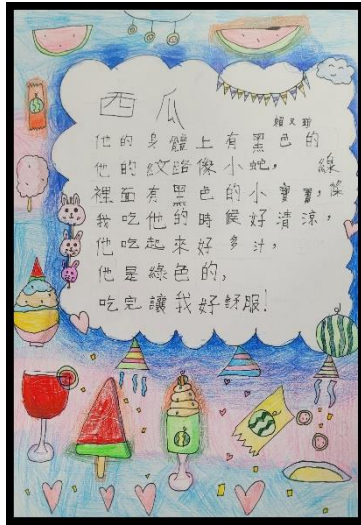 西瓜
他的身體上有黑色的
線條，
他的紋路像小蛇，
裡面有黑色的小寶寶，
我吃他的時候好清涼，
他吃起來好多汁，
他是綠色的，
吃完讓我好舒服！